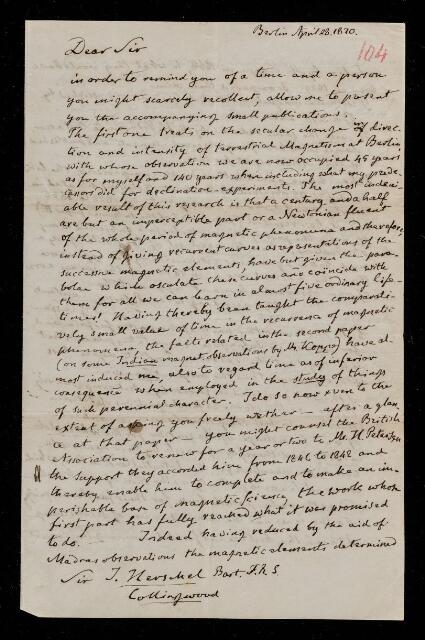 Berlin April 28. 1870.
104
Dear Sir
in order to remind you of a time and a person
you might scarcely recollect, allow me to present
you the accompanying small publications.
The first one treats on the secular change of direc-
tion and intensity of terrestrial Magnetism at Berlin,
with whose observation we are now occupied 45 years
as for myself and 140 years when including what my prede-
cessors did for declination experiments. The most undeni-
able result of this research is that a century and a half
are but an imperceptible part or a Newtonian fluent
of the whole period of magnetic phenomena and therefore,
instead of giving recurrent curves as representations of the
successive magnetic elements, have but given the para-
bolae which osculate these curves and coincide with
them for all we can learn in almost five ordinary life-
times! Having thereby been taught the comparati-
vely small value of time in the recurrence of magnetic
phenomena, the facts related in the second paper
(on some Indian magnet. observations by Mr Koppe) have al-
most induced me, also to regard time as of inferior
consequence when employed in the study of things
of such perennial character. I do so now even to the
extent of asking you freely wether — after a glan-
ce at that paper — you might counsel the British
Association to renew for a year or two to Mr. H. Petersen
the support they accorded him from 1846 to 1848 and
thereby enable him to complete and to make an im-
perishable base of magnetic Science, the work whose
first part has fully reached what it was promised
to do. Indeed having reduced by the aid of
Madras observations the magnetic elements determined
Sir J. Herschel Bart. F.R.S
Collingwood